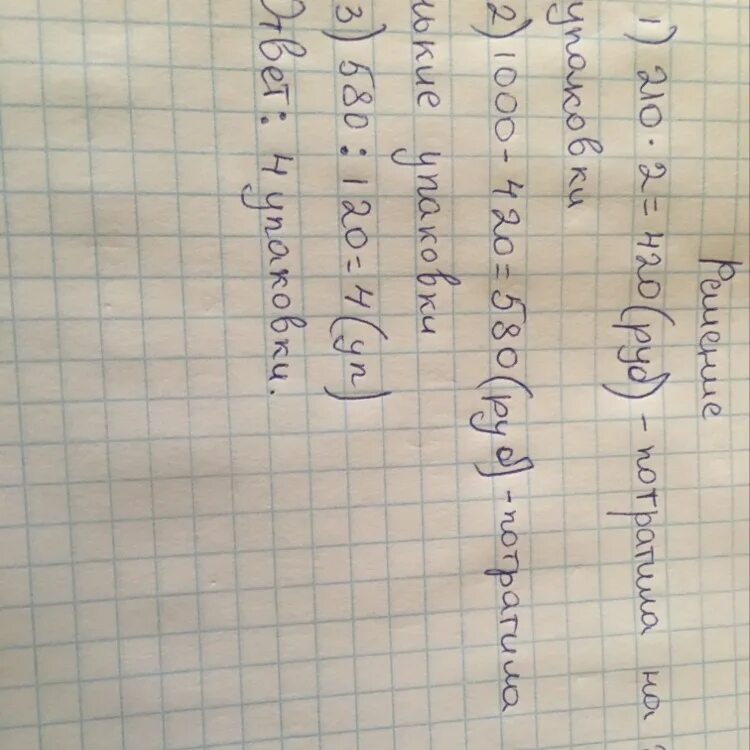 Решение
1) 210 · 2 = 420 (руб) - потратила на
упаковки
2) 1000 - 420 = 580 (руб) - потратила
упаковки
3) 580 : 120 = 4 (уп)
Ответ: 4 упаковки.